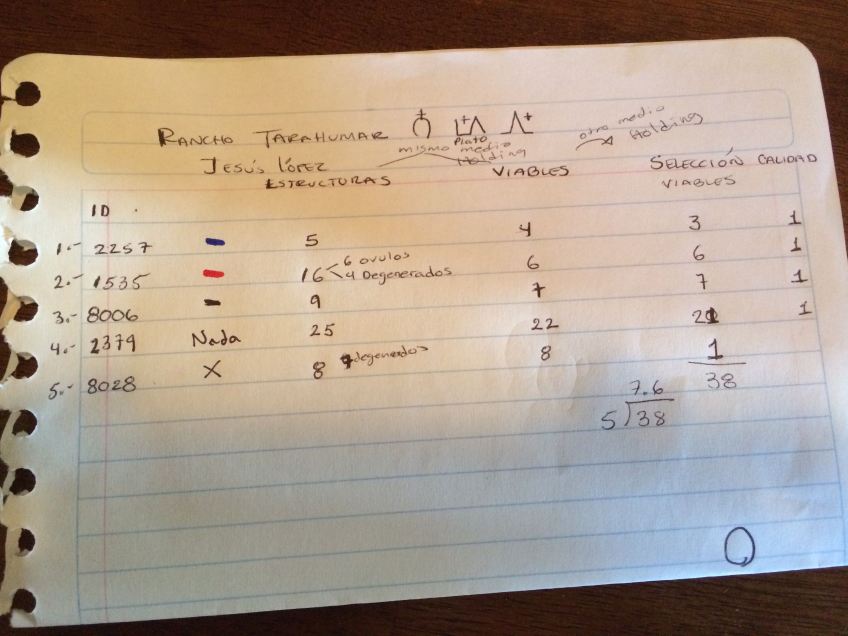 RANCHO TARAHUMAR
otro medio Holding
mismo Plato medio Holding
JESÚS LÓPEZ
ID ESTRUCTURAS VIABLES SELECCIÓN VIABLES CALIDAD
1.- 2257 5 4 3 1
2.- 1535 16 6 ovulos 4 Degenerados 6 6 1
3.- 8006 9 7 7 1
4.- 2379 Nada 25 22 21 1
5.- 8028 X 8 7 degenerados 8 1
38
7.6
5 38